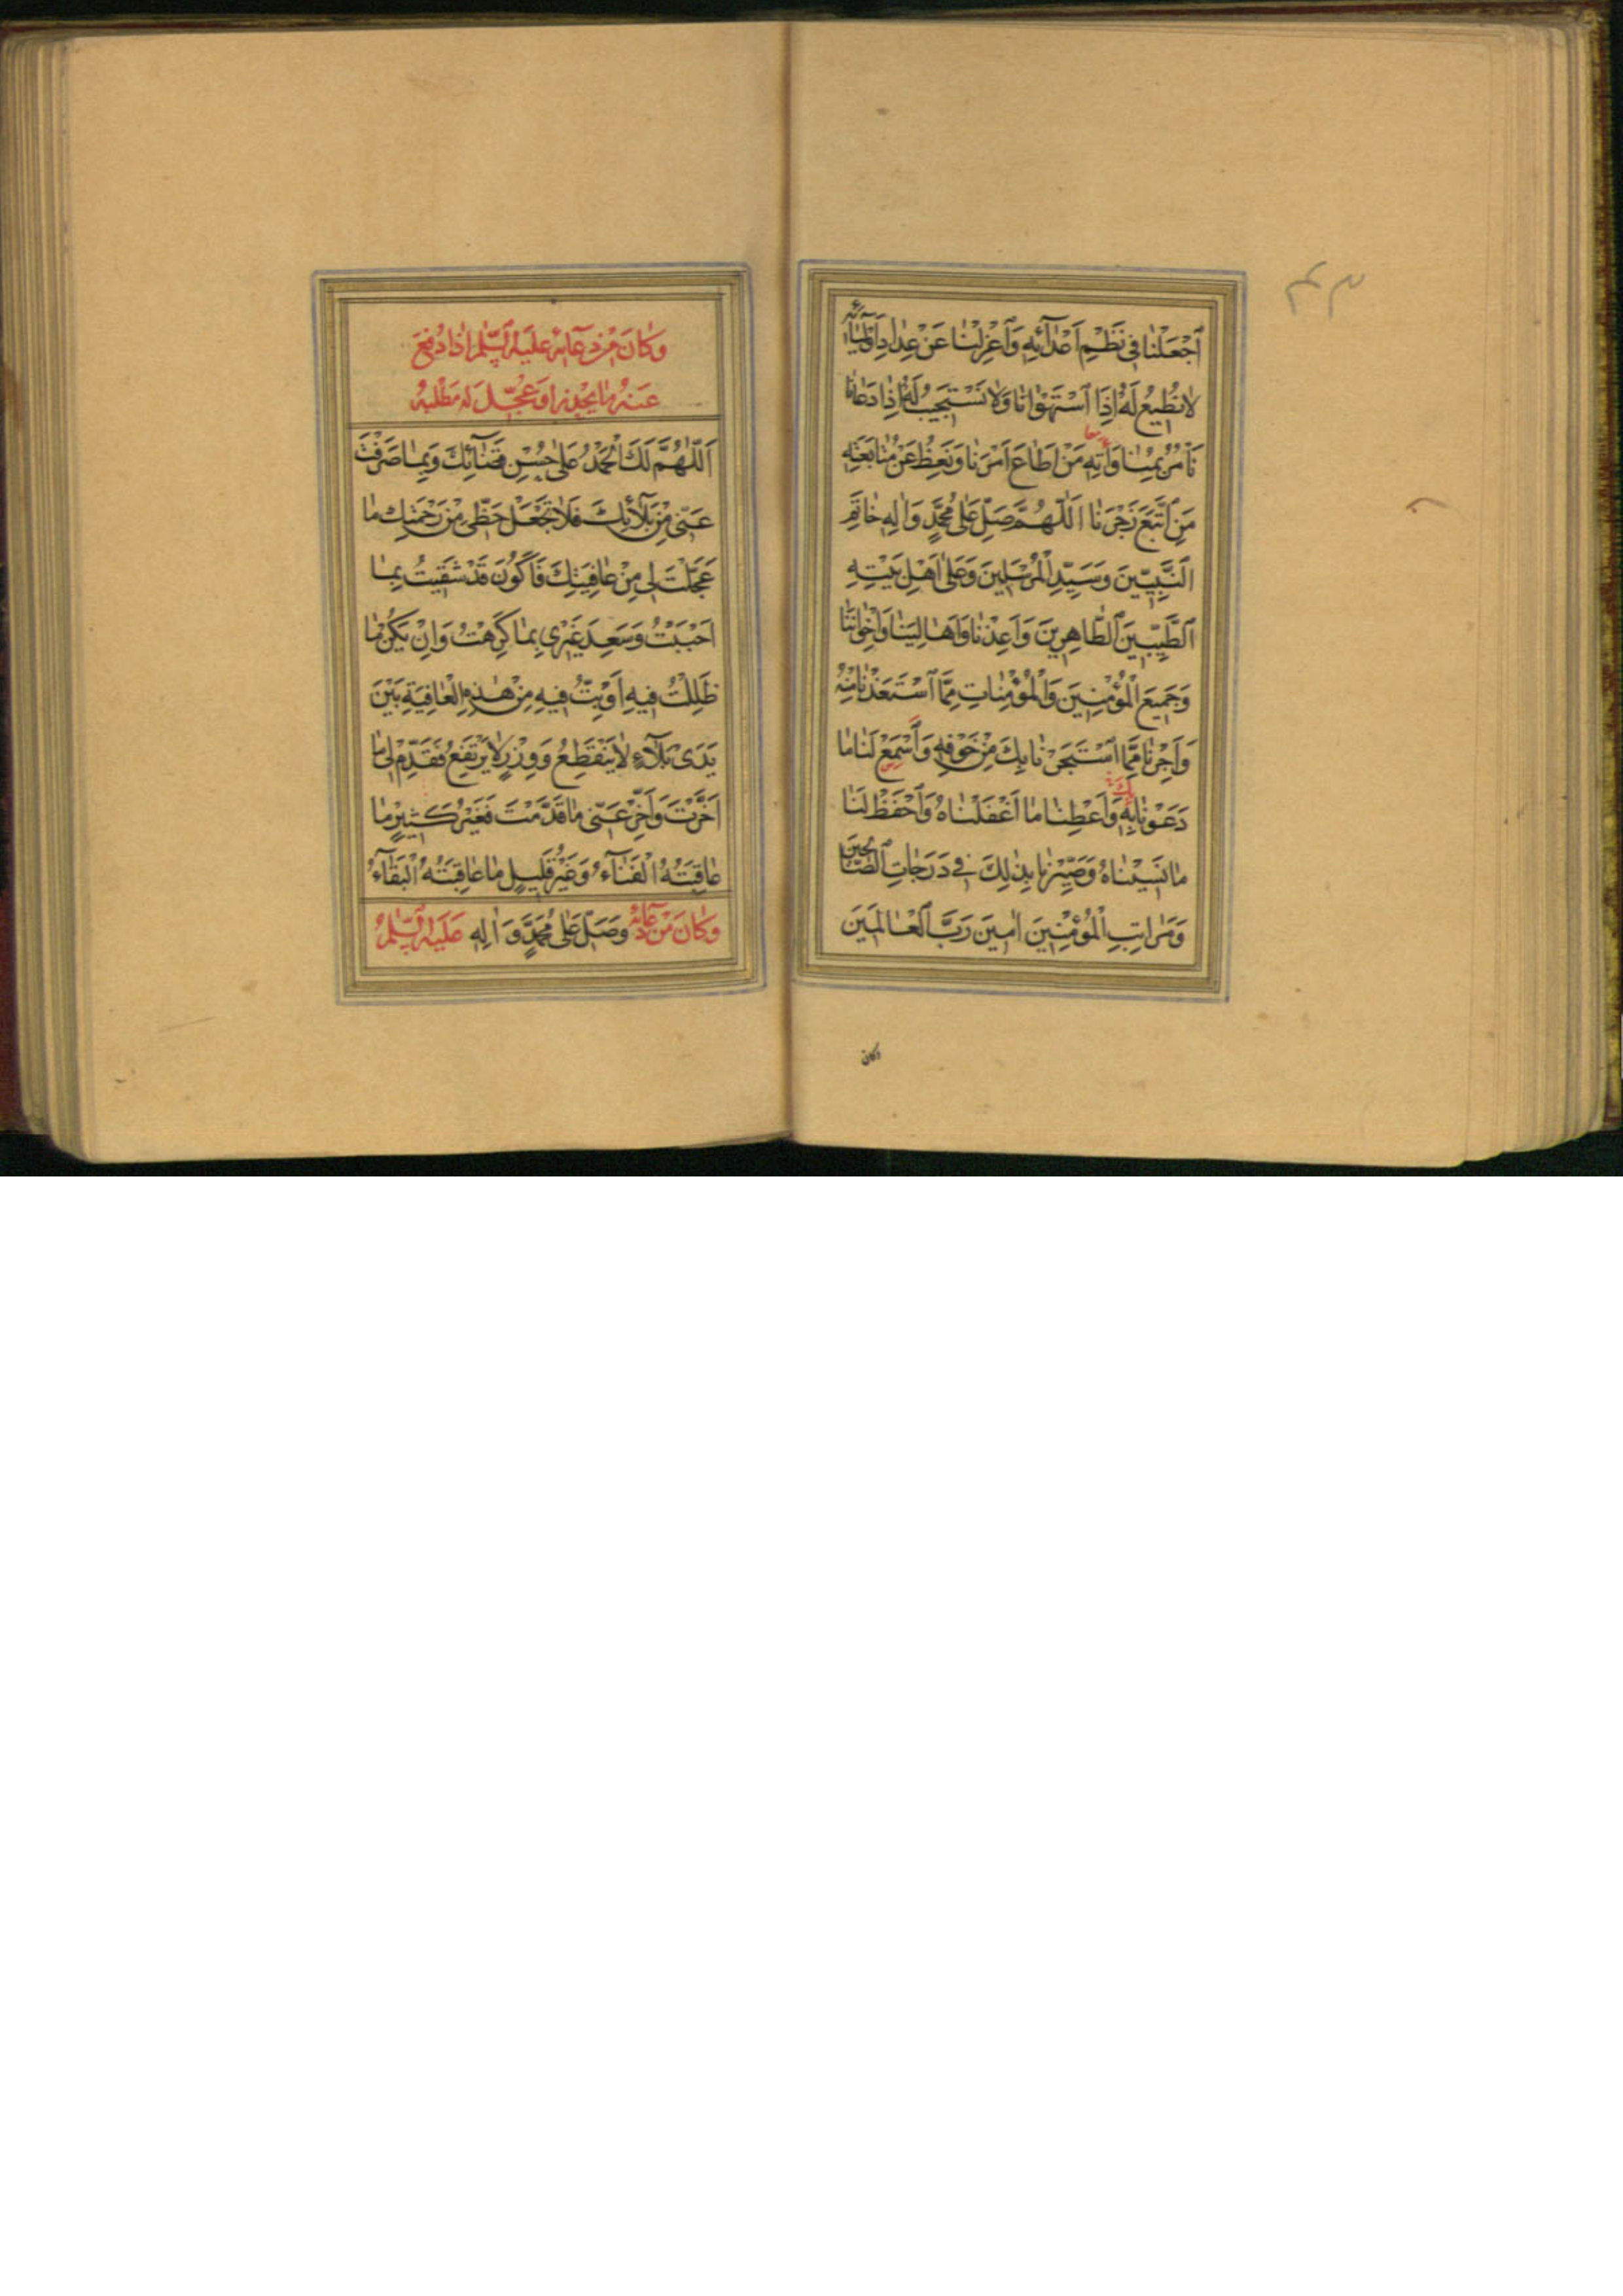 ٱجْعَلْنٰا فِى نَظْمِ اَعْدٰٓائِهِ وَٱعْزِلْنٰا عَنْ عِدٰادِ اَوْلِيٰٓائِهِ
لٰا نُطِيعُ لَهُ اِذَا ٱسْتَهْوٰانٰا وَلٰا نَسْتَجِيبُ لَهُ اِذٰا دَعٰانٰا
نَأْمُرُ بِمُنٰاوَاتِهِ مَنْ اَطٰاعَ اَمْرَنٰا وَنَعِظُ عَنْ مُتٰابَعَتِهِ
مَنِ ٱتَّبَعَ زَجْرَنٰا اَللّٰهُمَّ صَلِّ عَلٰى مُحَمَّدٍ وَاٰلِهِ خٰاتَمِ
ٱلنَّبِيّٖينَ وَسَيِّدِ ٱلْمُرْسَلِينَ وَعَلٰى اَهْلِ بَيْتِهِ
ٱلطَّيِّبِينَ ٱلطّٰاهِرِينَ وَاَعِذْنٰا وَاَهٰالِيَنٰا وَاِخْوٰانَنٰا
وَجَمِيعَ ٱلْمُؤْمِنِينَ وَٱلْمُؤْمِنٰاتِ مِمَّا ٱسْتَعَذْنٰا مِنْهُ
وَاَجِرْنٰا مِمَّا ٱسْتَجَرْنٰا بِكَ مِنْ خَوْفِهِ وَٱسْمَعْ لَنٰا مٰا
دَعَوْنٰا بِهِ وَاَعْطِنٰا مٰا اَغْفَلْنٰاهُ وَٱحْفَظْ لَنٰا
مٰا نَسِيْنٰاهُ وَصَيِّرْنٰا بِذٰلِكَ فِى دَرَجٰاتِ ٱلصّٰالِحِينَ
وَمَرٰاتِبِ ٱلْمُؤْمِنِينَ اٰمِينَ رَبَّ ٱلْعٰالَمِينَ
وكان
وَكٰانَ مِنْ دُعٰٓائِهِ عَلَيْهِ ٱلسَّلٰمُ اِذٰا دُفِعَ
عَنْهُ مٰا يَحْذَرُ اَوْ عُجِّلَ لَهُ مَطْلَبُهُ
اَللّٰهُمَّ لَكَ ٱلْحَمْدُ عَلٰى حُسْنِ قَضٰٓائِكَ وَبِمٰا صَرَفْتَ
عَنّٖى مِنْ بَلٰٓائِكَ فَلٰا تَجْعَلْ حَظّٖى مِنْ رَحْمَتِكَ مٰا
عَجَّلْتَ لِى مِنْ عٰافِيَتِكَ فَاَكُونَ قَدْ شَقِيتُ بِمٰا
اَحْبَبْتُ وَسَعِدَ غَيْرِى بِمٰا كَرِهْتُ وَاِنْ يَكُنْ مٰا
ظَلِلْتُ فِيهِ اَوْ بِتُّ فِيهِ مِنْ هٰذِهِ ٱلْعٰافِيَةِ بَيْنَ
يَدَىْ بَلٰٓاءٍ لٰا يَنْقَطِعُ وَوِزْرٍ لٰا يَرْتَفِعُ فَقَدِّمْ لِى مٰا
اَخَّرْتَ وَاَخِّرْ عَنّٖى مٰا قَدَّمْتَ فَغَيْرُ كَثِيرٍ مٰا
عٰاقِبَتُهُ ٱلْفَنٰٓاءُ وَغَيْرُ قَلِيلٍ مٰا عٰاقِبَتُهُ ٱلْبَقٰٓاءُ
وَكٰانَ مِنْ دُعٰٓائِهِ وَصَلِّ عَلٰى مُحَمَّدٍ وَاٰلِهِ عَلَيْهِ ٱلسَّلٰمُ